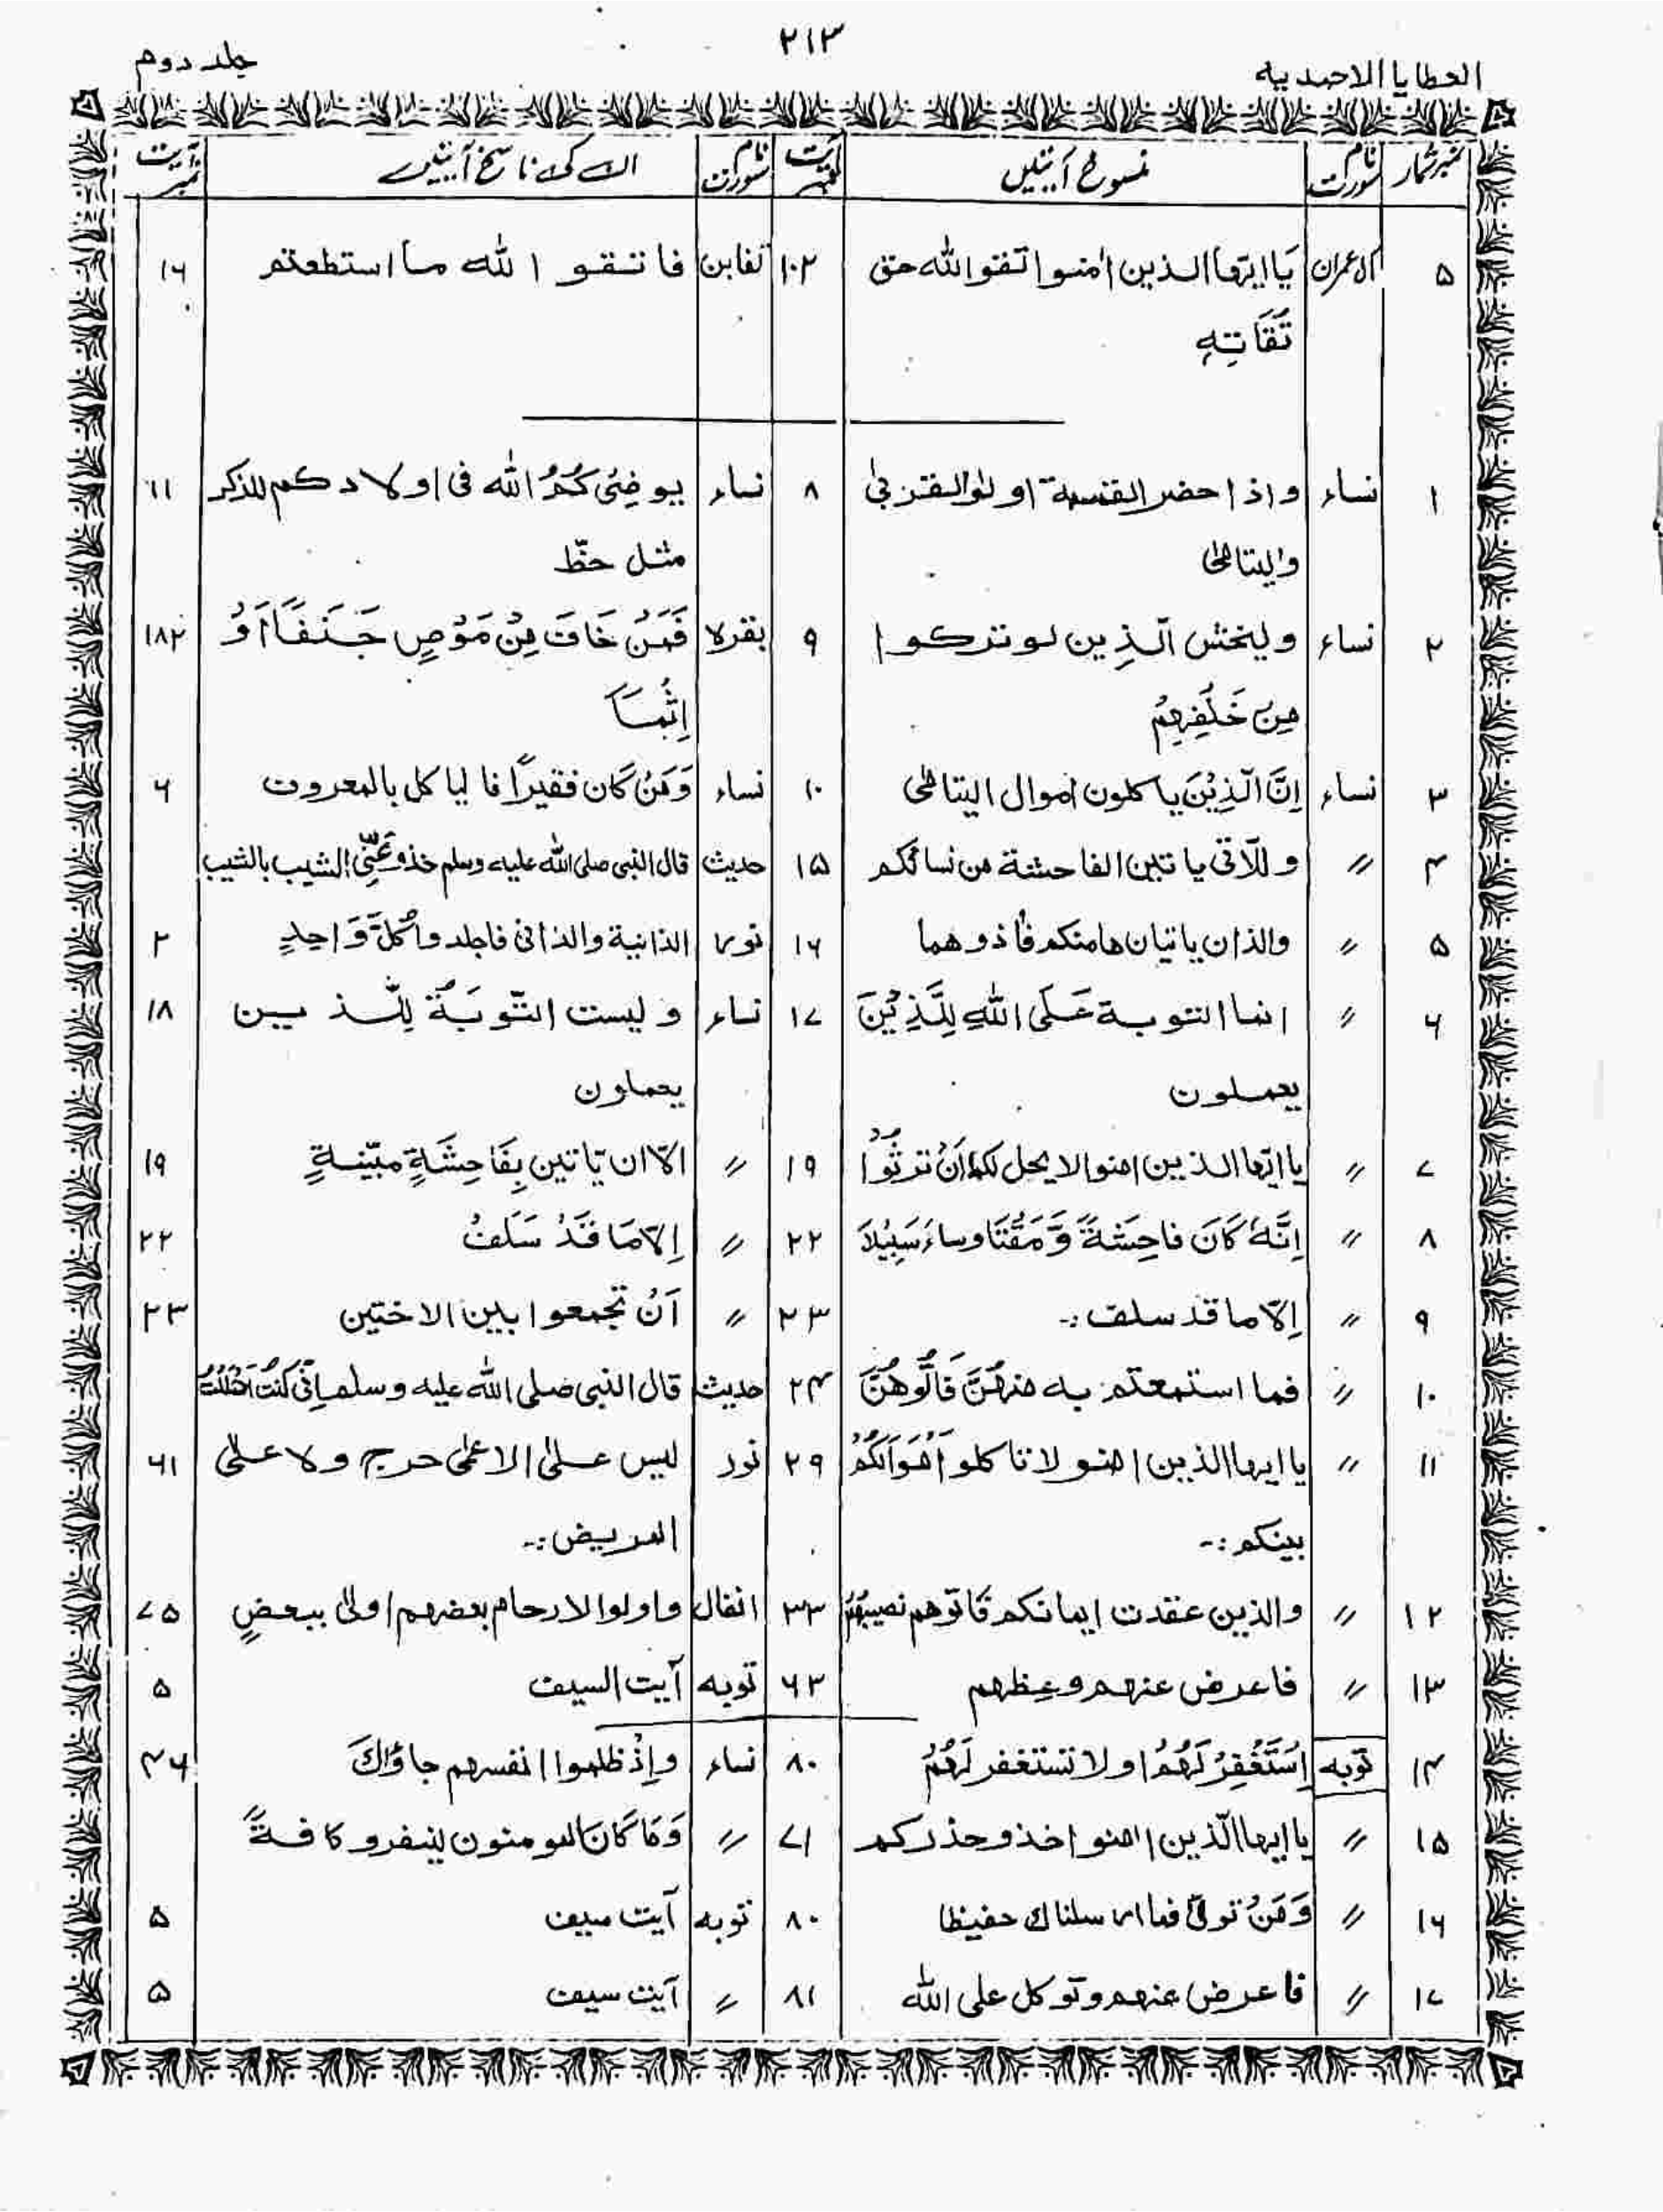 العطایا الاحمدیہ ۲۱۳ جلد دوم
نمبر شمار نام سورت منسوخ آیتیں آیت نمبر نام سورت ان کی ناسخ آیتیں آیت نمبر
۵ آل عمران یَا ایّھا الذین اٰمنوا اتقوا اللّٰه حق ۱۰۲ تغابن فاتقوا اللّٰه ما استطعتم ۱۶
تُقَاتِهِ
۱ نساء واذا حضر القسمة اولوالقربیٰ ۸ نساء یوصِیْ کُمُ اللّٰه فی اولادکم للذکر ۱۱
والیتامیٰ مثل حظّ
۲ نساء ولیخش الّذِین لو ترکوا ۹ بقرہ فَمَنْ خَافَ مِنْ مَوْصٍ جَنَفًا اَوْ ۱۸۲
مِنْ خَلْفِهِمْ اِثْمًا
۳ نساء اِنَّ الّذِیْنَ یاکلون اموال الیتامیٰ ۱۰ نساء وَمَنْ کَان فقیرًا فالیاکل بالمعروف ۶
۴ 〃 وللّاتی یاتین الفاحشة من نسائکم ۱۵ حدیث قال النبی صلی اللّٰه علیه وسلم خذو عَنِّی الشیب بالشیب
۵ 〃 والذان یاتیان ھا منکم فأذوھما ۱۶ نور الذانیة والذانی فاجلدوا کُلَّ وَاحِدٍ ۲
۶ 〃 انما التوبة عَلَی اللّٰهِ لِلَّذِیْنَ ۱۷ نساء ولیست التّوبَةُ لِلّذین ۱۸
یعملون یعملون
۷ 〃 یا ایّھا الذین اٰمنوا لا یحل لکم اَنْ ترثُوْا ۱۹ 〃 الّا ان یّاتین بِفَاحِشَةٍ مبّینةٍ ۱۹
۸ 〃 اِنَّهٗ کَانَ فاحِشَةً وَّمَقْتًا وساءَ سَبِیْلًا ۲۲ 〃 اِلّا مَا قَدْ سَلَفْ ۲۲
۹ 〃 اِلّا ما قد سلف :- ۲۳ 〃 اَنْ تجمعوا بین الاختین ۲۳
۱۰ 〃 فما استمتعتم به منھُنَّ فَاٰتُوْھُنَّ ۲۴ حدیث قال النبی صلی اللّٰه علیه وسلم اِنّی کنْتُ
۱۱ 〃 یا ایھا الذین اٰمنو لا تاکلو اَمْوَالَکُمْ ۲۹ نور لیس عَلیٰ الاعمیٰ حرج ولا عَلیٰ ۶۱
بینکم :- المریض :-
۱۲ 〃 والذین عقدت ایمانکم فَاٰتوھم نصیبَھُمْ ۳۳ انفال واولوا الارحام بعضھم اولیٰ ببعضٍ ۷۵
۱۳ 〃 فاعرض عنھم وعِظھم ۶۳ توبه آیت السیف ۵
۱۴ توبه اِسْتَغْفِرْ لَھُمْ اولا تستغفر لَھُمْ ۸۰ نساء واِذْ ظلموا انفسھم جاؤٗاکَ ۴۶
۱۵ 〃 یا ایھا الّذین اٰمنو اخذو حذرکم ۷۱ 〃 وَمَا کَانَ المومنون لینفرو کافةً
۱۶ 〃 وَمَنْ تولّیٰ فما ارسلناك حفیظا ۸۰ توبه آیت سیف ۵
۱۷ 〃 فاعرض عنھم وتوکل علی اللّٰه ۸۱ 〃 آیت سیف ۵